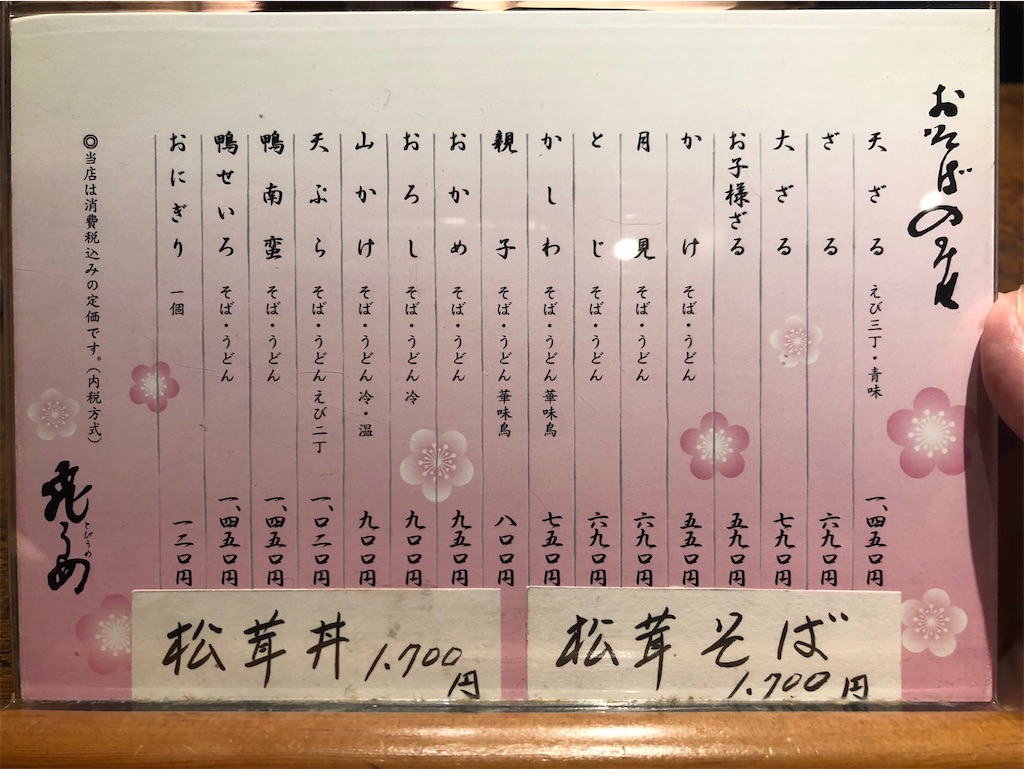 おそばのみせ
天ざる えび三丁・青味 一、四五〇円
ざる 六九〇円
大ざる 七九〇円
お子様ざる 五九〇円
かけ そば・うどん 五五〇円
月見 そば・うどん 六九〇円
とじ そば・うどん 六九〇円
かしわ そば・うどん 華味鳥 七五〇円
親子 そば・うどん 華味鳥 八〇〇円
おかめ そば・うどん 九五〇円
おろし そば・うどん 冷 九〇〇円
山かけ そば・うどん 冷・温 九〇〇円
天ぷら そば・うどん えび二丁 一、〇二〇円
鴨南蛮 そば・うどん 一、四五〇円
鴨せいろ そば・うどん 一、四五〇円
おにぎり 一個 一二〇円
◎当店は消費税込みの定価です。(内税方式)
飛うめ
とびうめ
松茸そば
1.700円
松茸丼 1.700
円